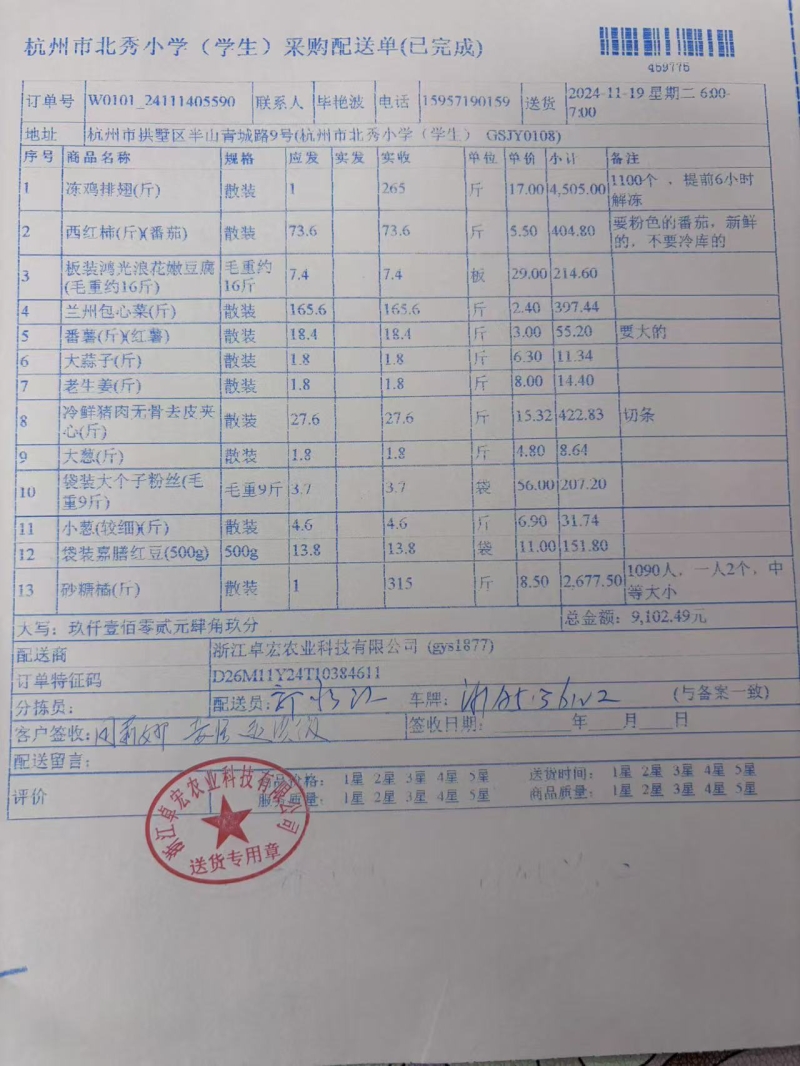 杭州市北秀小学（学生）采购配送单(已完成)
459775
订单号 W0101_24111405590 联系人 毕艳波 电话 15957190159 送货 2024-11-19 星期二 6:00-7:00
地址 杭州市拱墅区半山青城路9号(杭州市北秀小学（学生） GSJY0108)
序号 商品名称 规格 应发 实发 实收 单位 单价 小计 备注
1 冻鸡排翅(斤) 散装 1 265 斤 17.00 4,505.00 1100个 ，提前6小时解冻
2 西红柿(斤)(番茄) 散装 73.6 73.6 斤 5.50 404.80 要粉色的番茄，新鲜的，不要冷库的
3 板装鸿光浪花嫩豆腐(毛重约16斤) 毛重约16斤 7.4 7.4 板 29.00 214.60
4 兰州包心菜(斤) 散装 165.6 165.6 斤 2.40 397.44
5 番薯(斤)(红薯) 散装 18.4 18.4 斤 3.00 55.20 要大的
6 大蒜子(斤) 散装 1.8 1.8 斤 6.30 11.34
7 老生姜(斤) 散装 1.8 1.8 斤 8.00 14.40
8 冷鲜猪肉无骨去皮夹心(斤) 散装 27.6 27.6 斤 15.32 422.83 切条
9 大葱(斤) 散装 1.8 1.8 斤 4.80 8.64
10 袋装大个子粉丝(毛重9斤) 毛重9斤 3.7 3.7 袋 56.00 207.20
11 小葱(较细)(斤) 散装 4.6 4.6 斤 6.90 31.74
12 袋装嘉膳红豆(500g) 500g 13.8 13.8 袋 11.00 151.80
13 砂糖橘(斤) 散装 1 315 斤 8.50 2,677.50 1090人，一人2个，中等大小
大写：玖仟壹佰零贰元肆角玖分 总金额：9,102.49元
配送商 浙江卓宏农业科技有限公司 (gys1877)
订单特征码 D26M11Y24T10384611
分拣员： 配送员： 车牌： (与备案一致)
客户签收： 签收日期：____年____月____日
配送留言：
评价 商品价格： 1星 2星 3星 4星 5星 送货时间： 1星 2星 3星 4星 5星
服务质量： 1星 2星 3星 4星 5星 商品质量： 1星 2星 3星 4星 5星
浙江卓宏农业科技有限公司
送货专用章